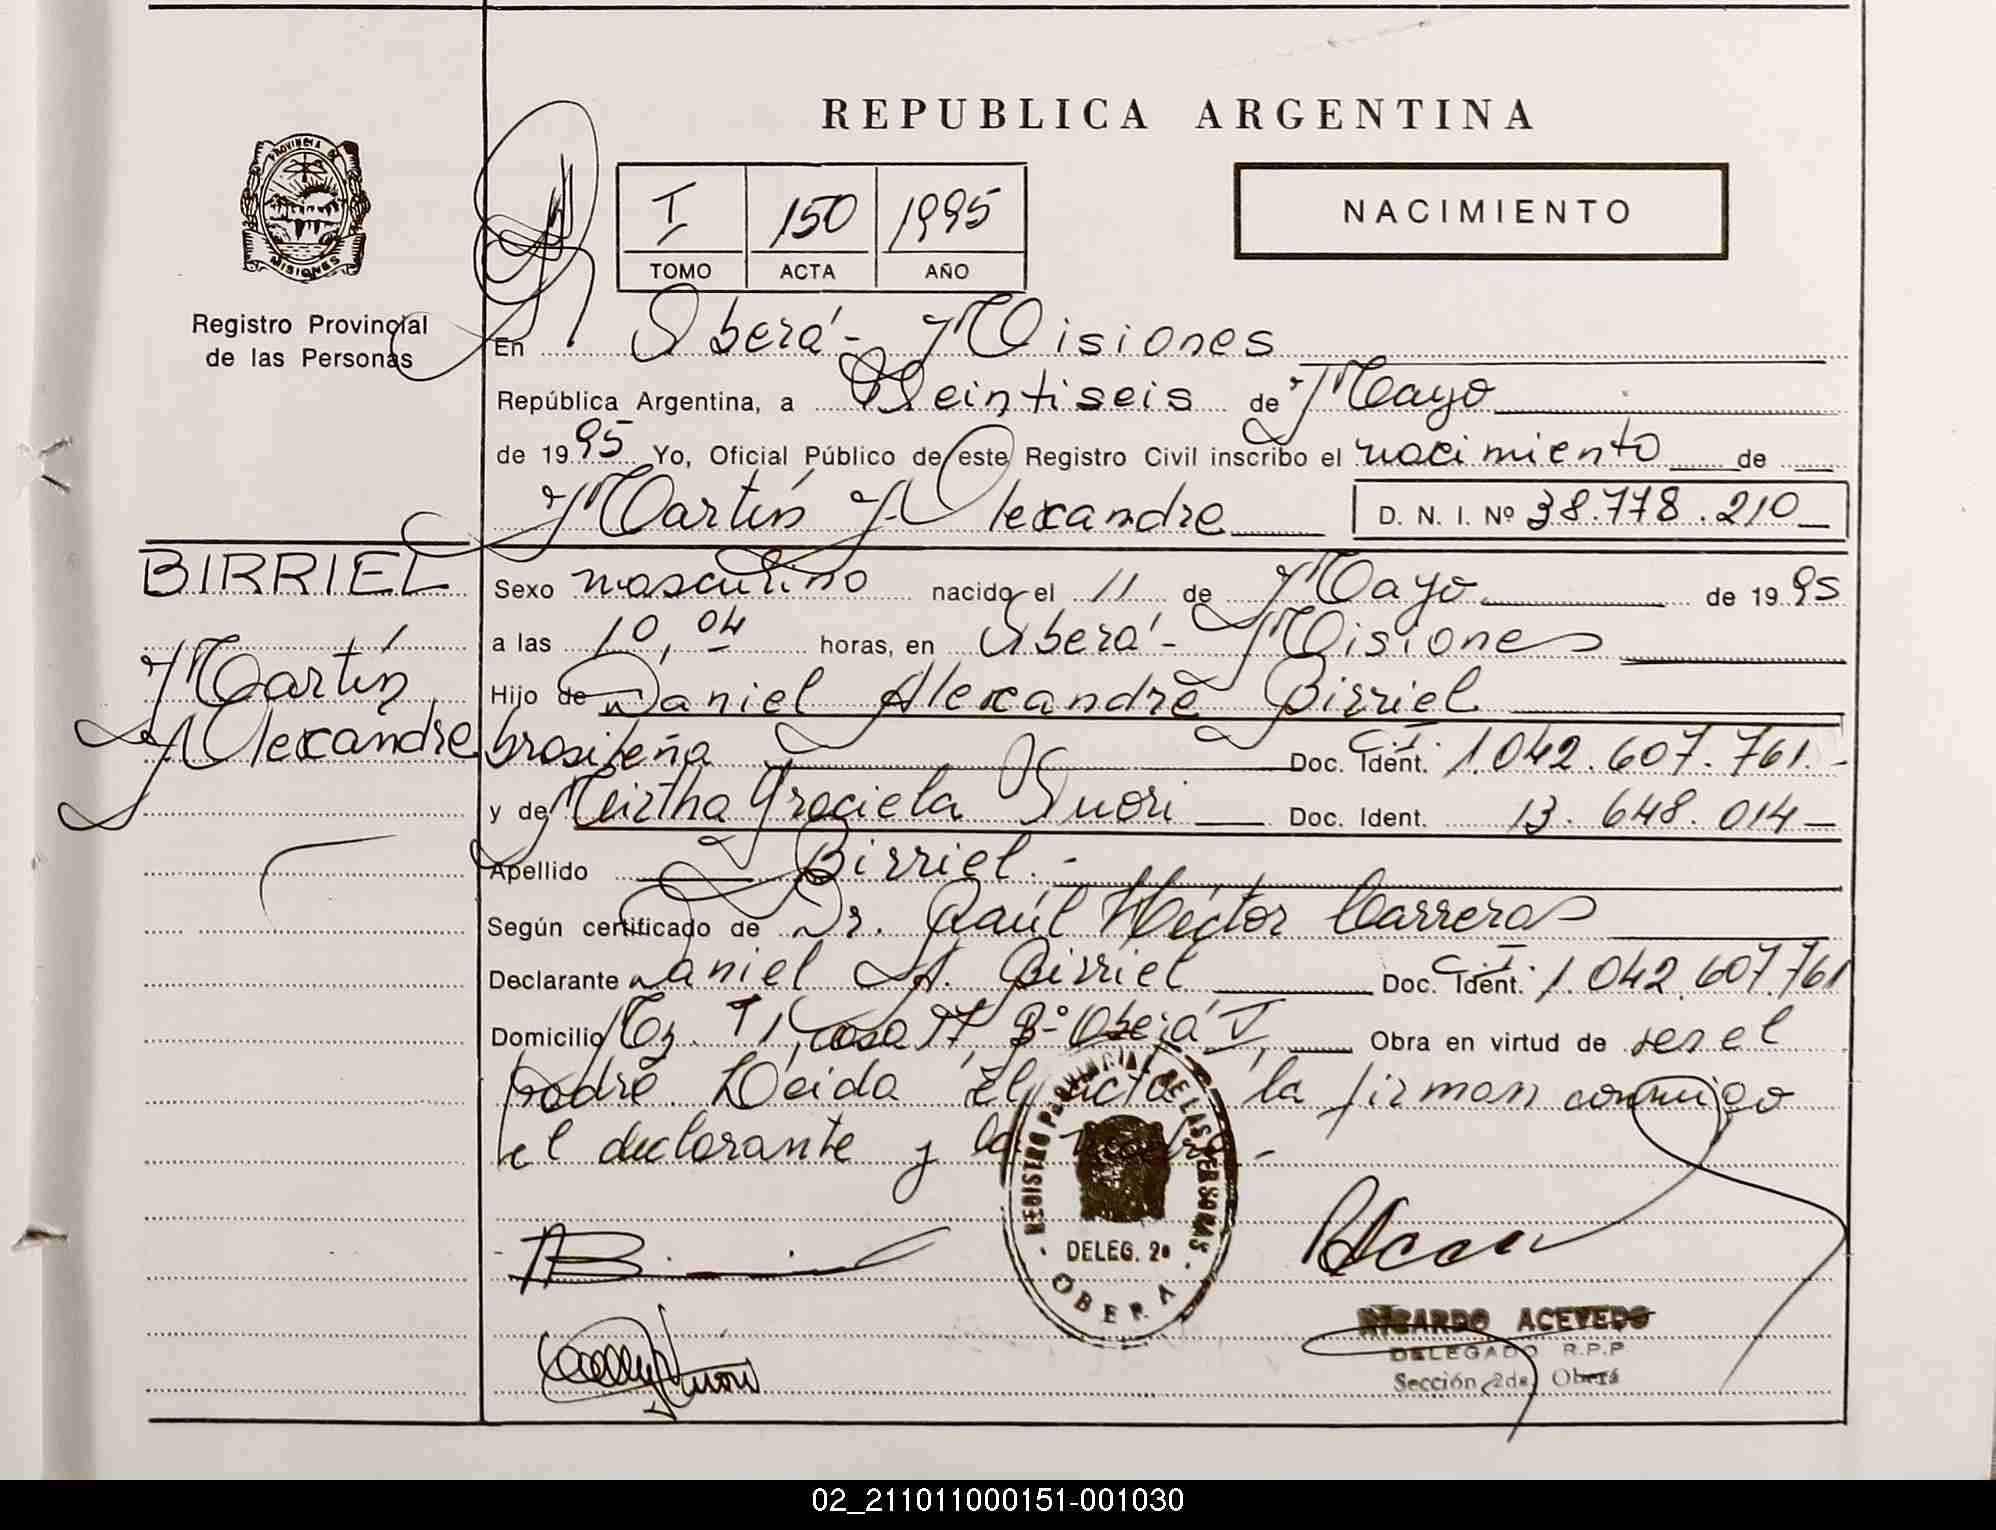 REPUBLICA ARGENTINA
PROVINCIA DE
MISIONES
Registro Provincial
de las Personas
I 150 1995
TOMO ACTA AÑO
NACIMIENTO
En Oberá - Misiones
República Argentina, a Veintiseis de Mayo
de 1995 Yo, Oficial Público de este Registro Civil inscribo el nacimiento de
Martín Alexandre D. N. I. Nº 38.778.210
BIRRIEL
Martín
Alexandre
Sexo masculino nacido el 11 de Mayo de 1995
a las 10,04 horas, en Oberá - Misiones
Hijo de Daniel Alexandre Birriel
brasileña Doc. Ident. C.I. 1.042.607.761.-
y de Mirtha Graciela Doc. Ident. 13.648.014
Apellido Birriel.-
Según certificado de Dr. Raúl Héctor Carreras
Declarante Daniel A. Birriel Doc. Ident. C.I. 1.042.607.761
Domicilio Mz. casa 17, Bº Oberá V, Obra en virtud de ser el
padre. Leida el acta la firman conmigo
el declarante y la madre.-
REGISTRO PROVINCIAL DE LAS PERSONAS
DELEG. 2a
OBERA
RICARDO ACEVEDO
DELEGADO R.P.P
Sección 2da Oberá
02_211011000151-001030